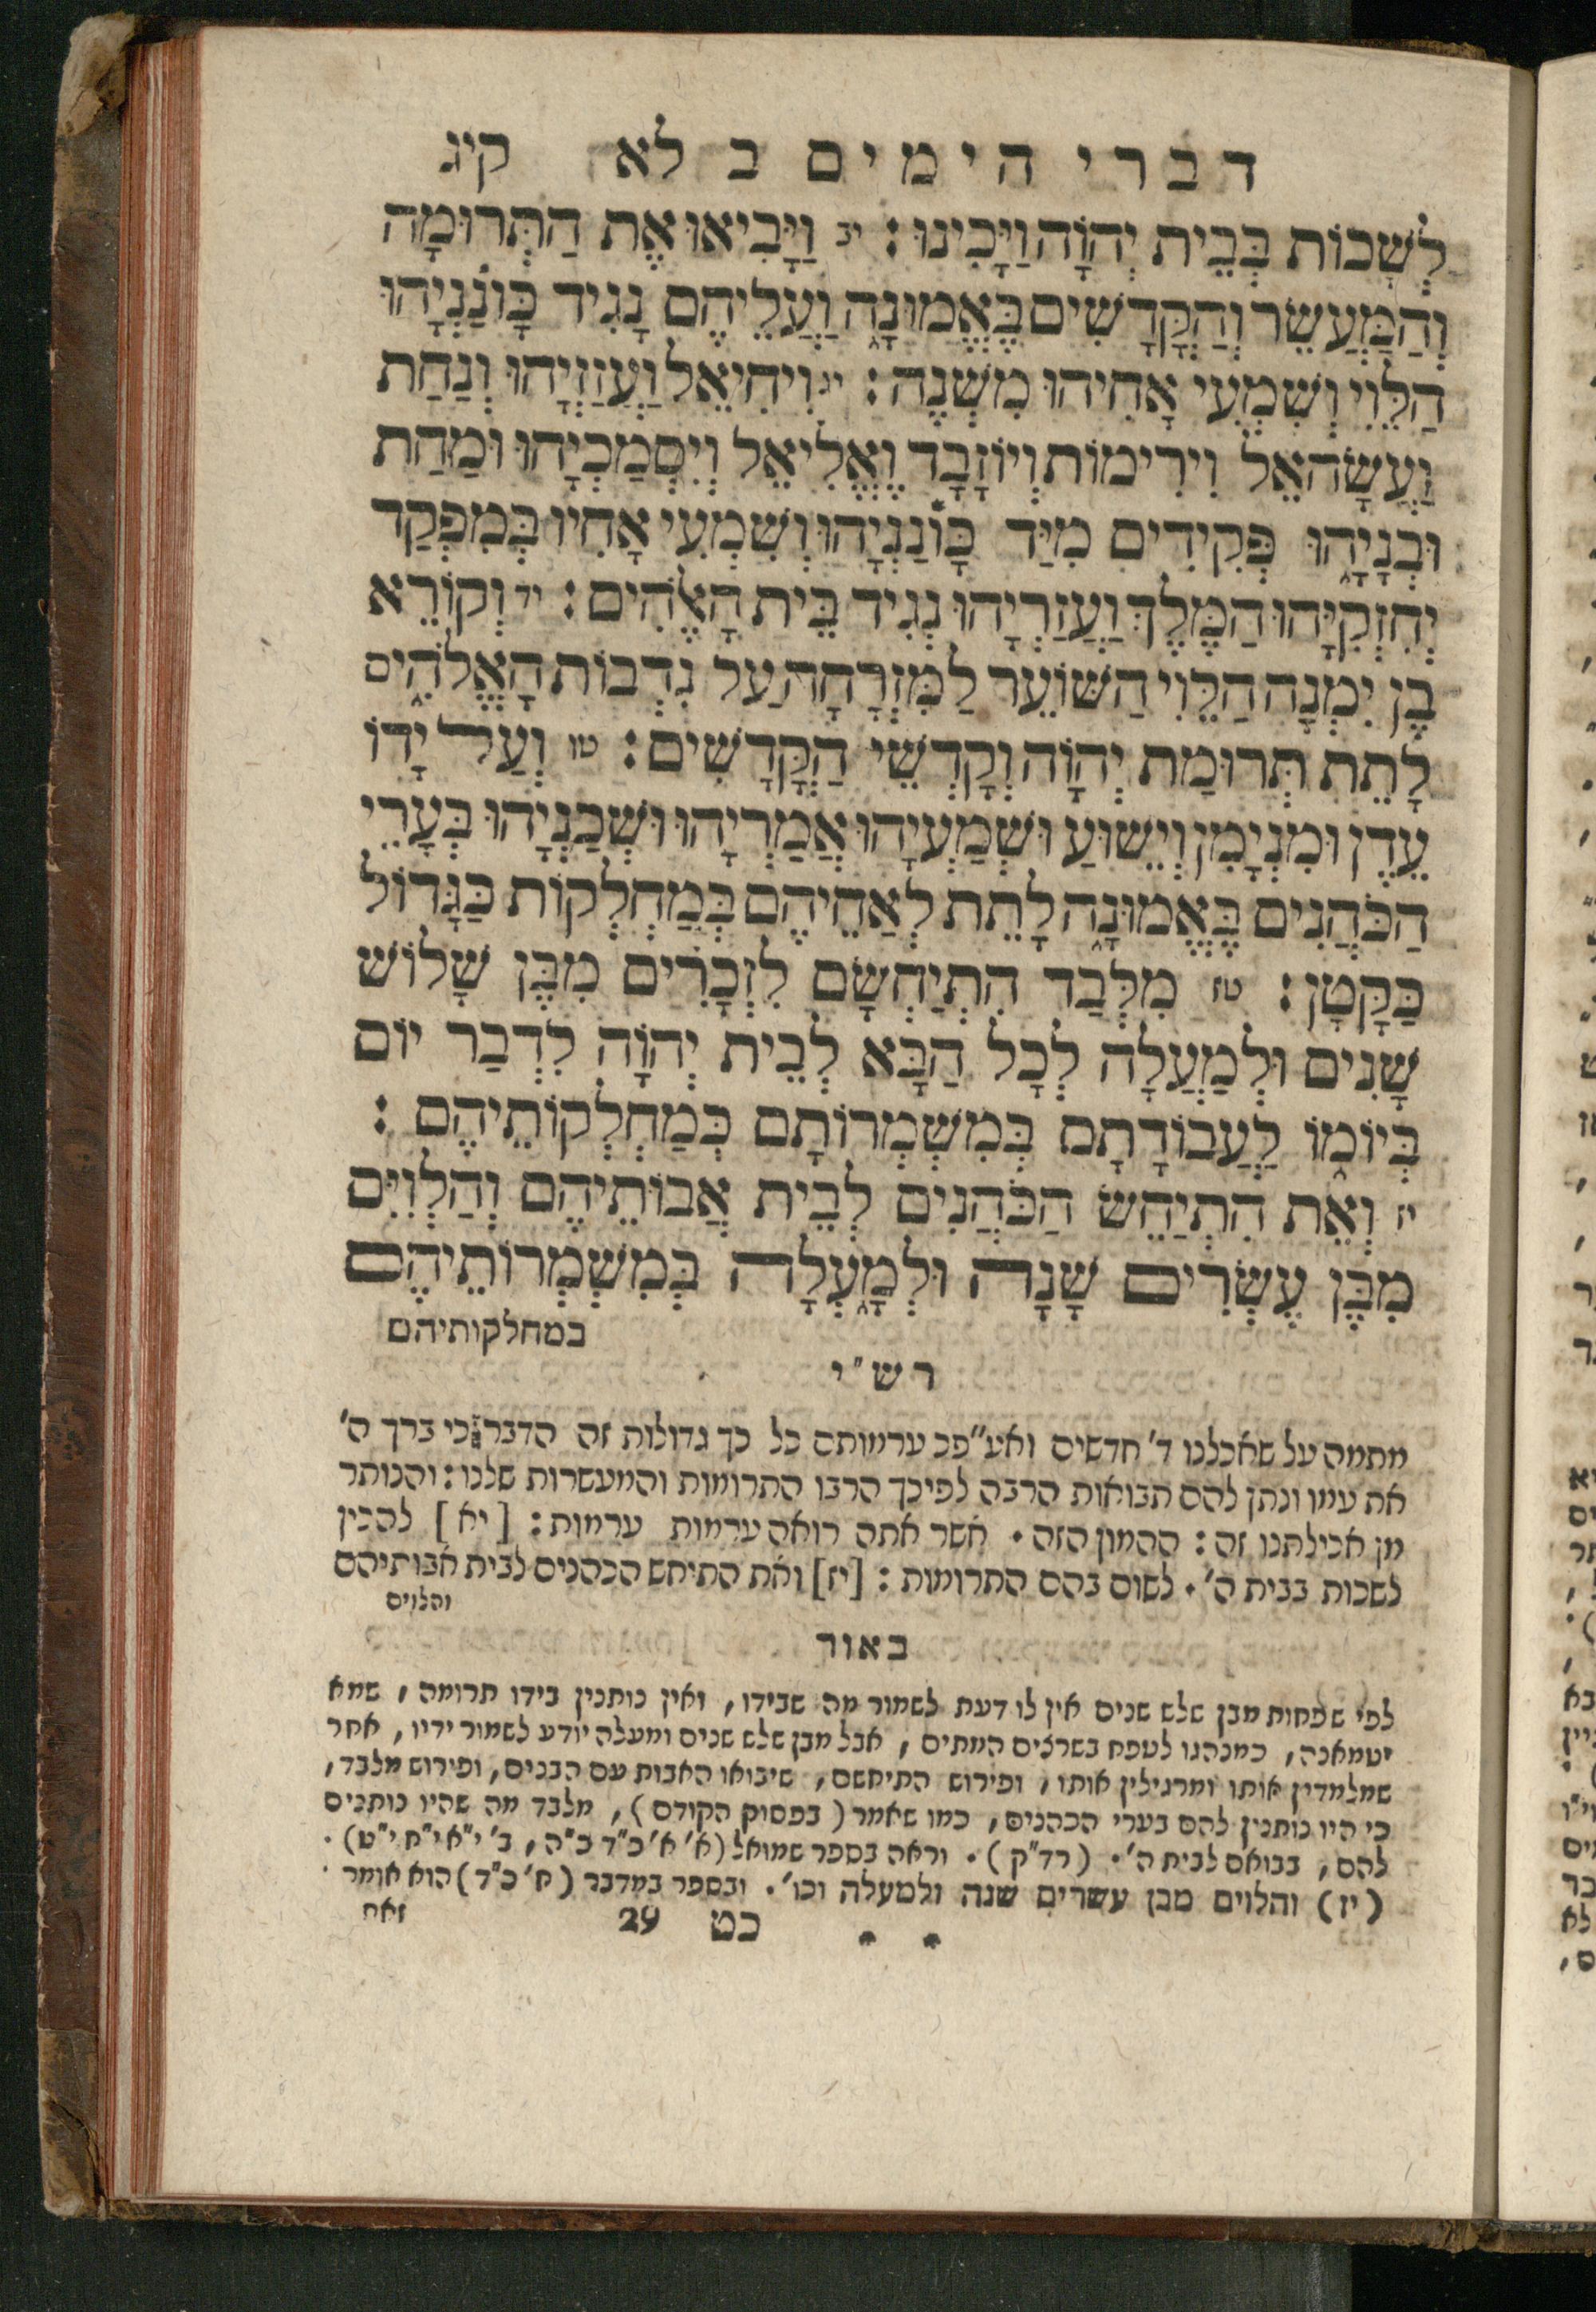 דברי הימים ב לא קיג
לְשָׁכוֹת בְּבֵית יְהוָֹה וַיָּכִינוּ: יב וַיָּבִיאוּ אֶת הַתְּרוּמָה
וְהַמַּעֲשֵׂר וְהַקֳּדָשִׁים בֶּאֱמוּנָה וַעֲלֵיהֶם נָגִיד כָּוֹנַנְיָהוּ
הַלֵּוִי וְשִׁמְעִי אָחִיהוּ מִשְׁנֶה: יג וִיחִיאֵל וַעֲזַזְיָהוּ וְנַחַת
וַעֲשָׂהאֵל וִירִימוֹת וְיוֹזָבָד וֶאֱלִיאֵל וְיִסְמַכְיָהוּ וּמַחַת
וּבְנָיָהוּ פְּקִידִים מִיַּד כָּוֹנַנְיָהוּ וְשִׁמְעִי אָחִיו בְּמִפְקַד
יְחִזְקִיָּהוּ הַמֶּלֶךְ וַעֲזַרְיָהוּ נְגִיד בֵּית הָאֱלֹהִים: יד וְקוֹרֵא
בֶן יִמְנָה הַלֵּוִי הַשּׁוֹעֵר לַמִּזְרָחָה עַל נִדְבוֹת הָאֱלֹהִים
לָתֵת תְּרוּמַת יְהוָֹה וְקָדְשֵׁי הַקֳּדָשִׁים: טו וְעַל יָדוֹ
עֵדֶן וּמִנְיָמִן וְיֵשׁוּעַ וּשְׁמַעְיָהוּ אֲמַרְיָהוּ וּשְׁכַנְיָהוּ בְּעָרֵי
הַכֹּהֲנִים בֶּאֱמוּנָה לָתֵת לְאַחֵיהֶם בְּמַחְלְקוֹת כַּגָּדוֹל
כַּקָּטָן: טז מִלְּבַד הִתְיַחְשָׂם לִזְכָרִים מִבֶּן שָׁלוֹשׁ
שָׁנִים וּלְמַעְלָה לְכָל הַבָּא לְבֵית יְהוָֹה לִדְבַר יוֹם
בְּיוֹמוֹ לַעֲבוֹדָתָם בְּמִשְׁמְרוֹתָם כְּמַחְלְקוֹתֵיהֶם:
יז וְאֵת הִתְיַחֵשׂ הַכֹּהֲנִים לְבֵית אֲבוֹתֵיהֶם וְהַלְוִיִּם
מִבֶּן עֶשְׂרִים שָׁנָה וּלְמָעְלָה בְּמִשְׁמְרוֹתֵיהֶם
במחלקותיהם
רש"י
מתמה על שאכלנו ד' חדשים ואע"פכ ערמותם כל כך גדולות זה הדבר כי ברך ה'
את עמו ונתן להם תבואות הרבה לפיכך הרבו התרומות והמעשרות שלנו: והנותר
מן אכילתנו זה: ההמון הזה. אשר אתה רואה ערמות ערמות: [יא] להכין
לשכות בבית ה'. לשום בהם התרומות: [יז] ואת התיחש הכהנים לבית אבותיהם
והלוים
באור
לפי שפחות מבן שלש שנים אין לו דעת לשמור מה שבידו, ואין נותנין בידו תרומה, שמא
יטמאנה, כמנהגו לטפח בשרצים המתים, אבל מבן שלש שנים ומעלה יודע לשמור ידיו, אחר
שמלמדין אותו ומרגילין אותו, ופירוש התיחשם, שיבואו האבות עם הבנים, ופירוש מלבד,
כי היו נותנין להם בערי הכהנים, כמו שאמר (בפסוק הקודם), מלבד מה שהיו נותנים
להם, בבואם לבית ה'. (רד"ק). וראה בספר שמואל (א' א' כ"ד כ"ה, ב' י"א י"ח י"ט).
(יז) והלוים מבן עשרים שנה ולמעלה וכו'. ובספר במדבר (ח' כ"ד) הוא אומר.
כט 29 זאת